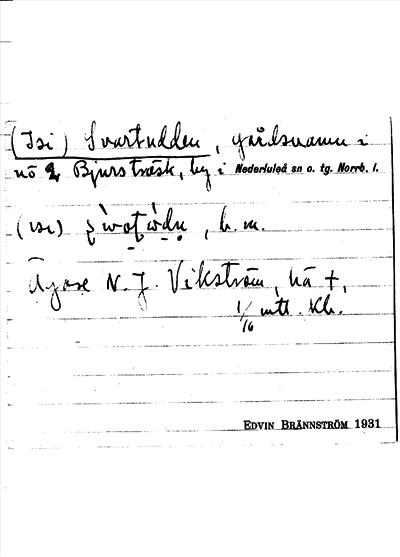 (Isi) Svartudden, gårdsnamn i
nö 2 Bjursträsk, by i Nederluleå sn o. tg. Norrb. l.
(isi)
Ägare N. J. Vikström, nä +,
1/16 mtl. Kh.
EDVIN BRÄNNSTRÖM 1931